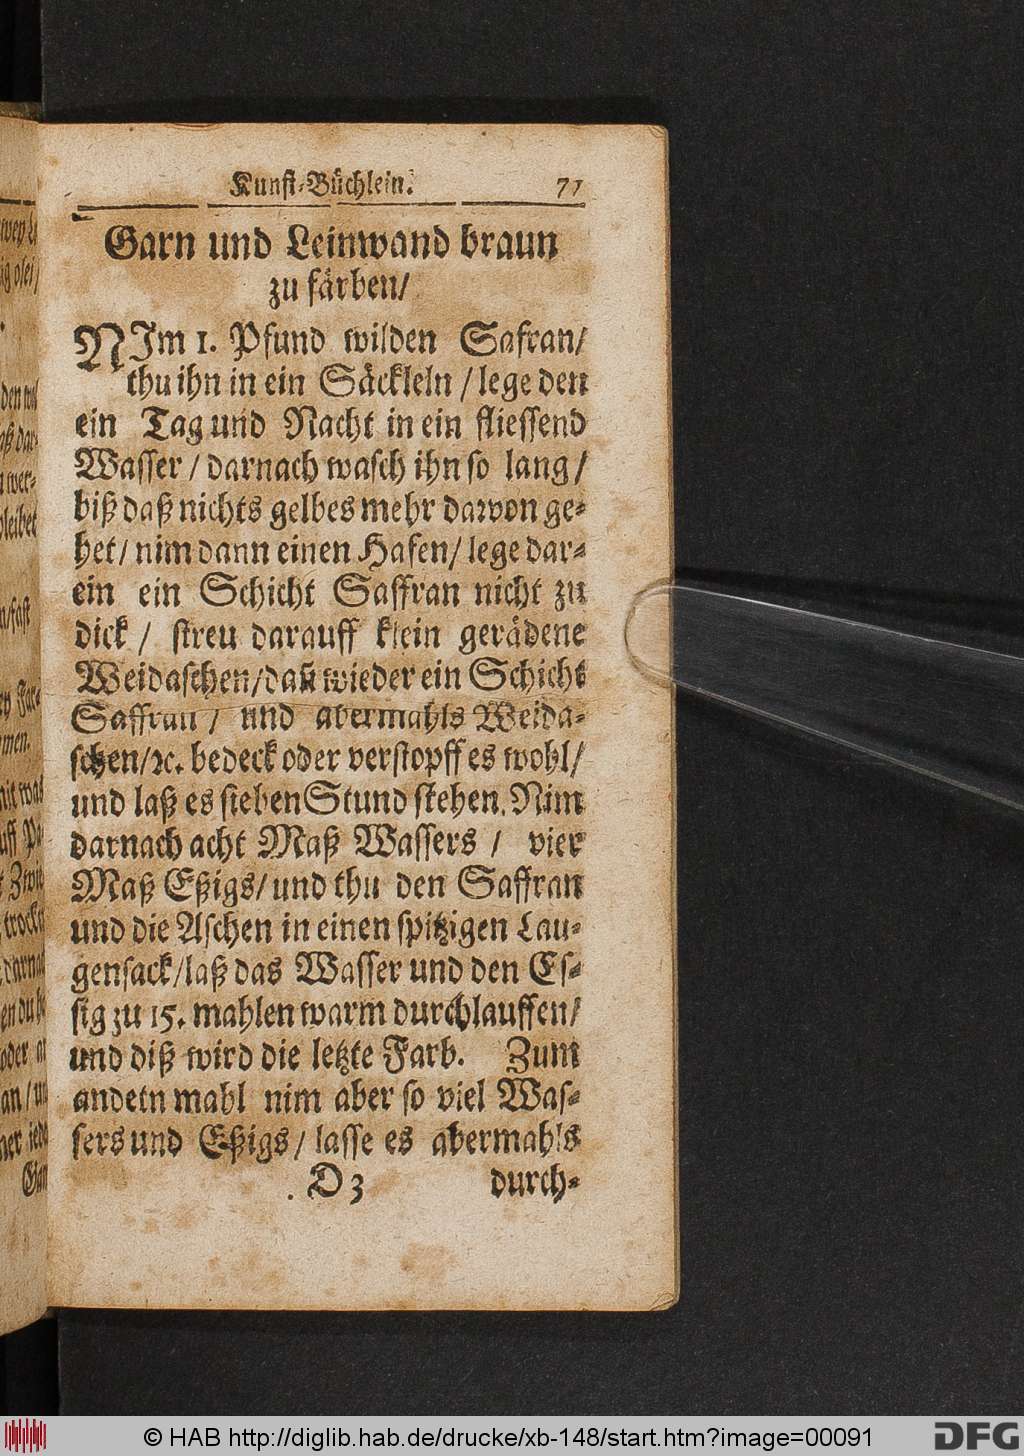 Kunst-Büchlein. 71
Garn und Leinwand braun
zu färben/
NIm 1. Pfund wilden Safran/
thu ihn in ein Säckleln / lege den
ein Tag und Nacht in ein fliessend
Wasser / darnach wasch ihn so lang /
biß daß nichts gelbes mehr darvon ge-
het / nim dann einen Hafen / lege dar-
ein ein Schicht Saffran nicht zu
dick / streu darauff klein gerädene
Weidaschen / dañ wieder ein Schicht
Saffran / und abermahls Weida-
schen / ꝛc. bedeck oder verstopff es wohl /
und laß es sieben Stund stehen. Nim
darnach acht Maß Wassers / vier
Maß Eßigs / und thu den Saffran
und die Aschen in einen spitzigen Lau-
gensack / laß das Wasser und den Es-
sig zu 15. mahlen warm durchlauffen /
und diß wird die letzte Farb. Zum
andetn mahl nim aber so viel Was-
sers und Eßigs / lasse es abermahls
D 3 durch-
© HAB http://diglib.hab.de/drucke/xb-148/start.htm?image=00091
DFG